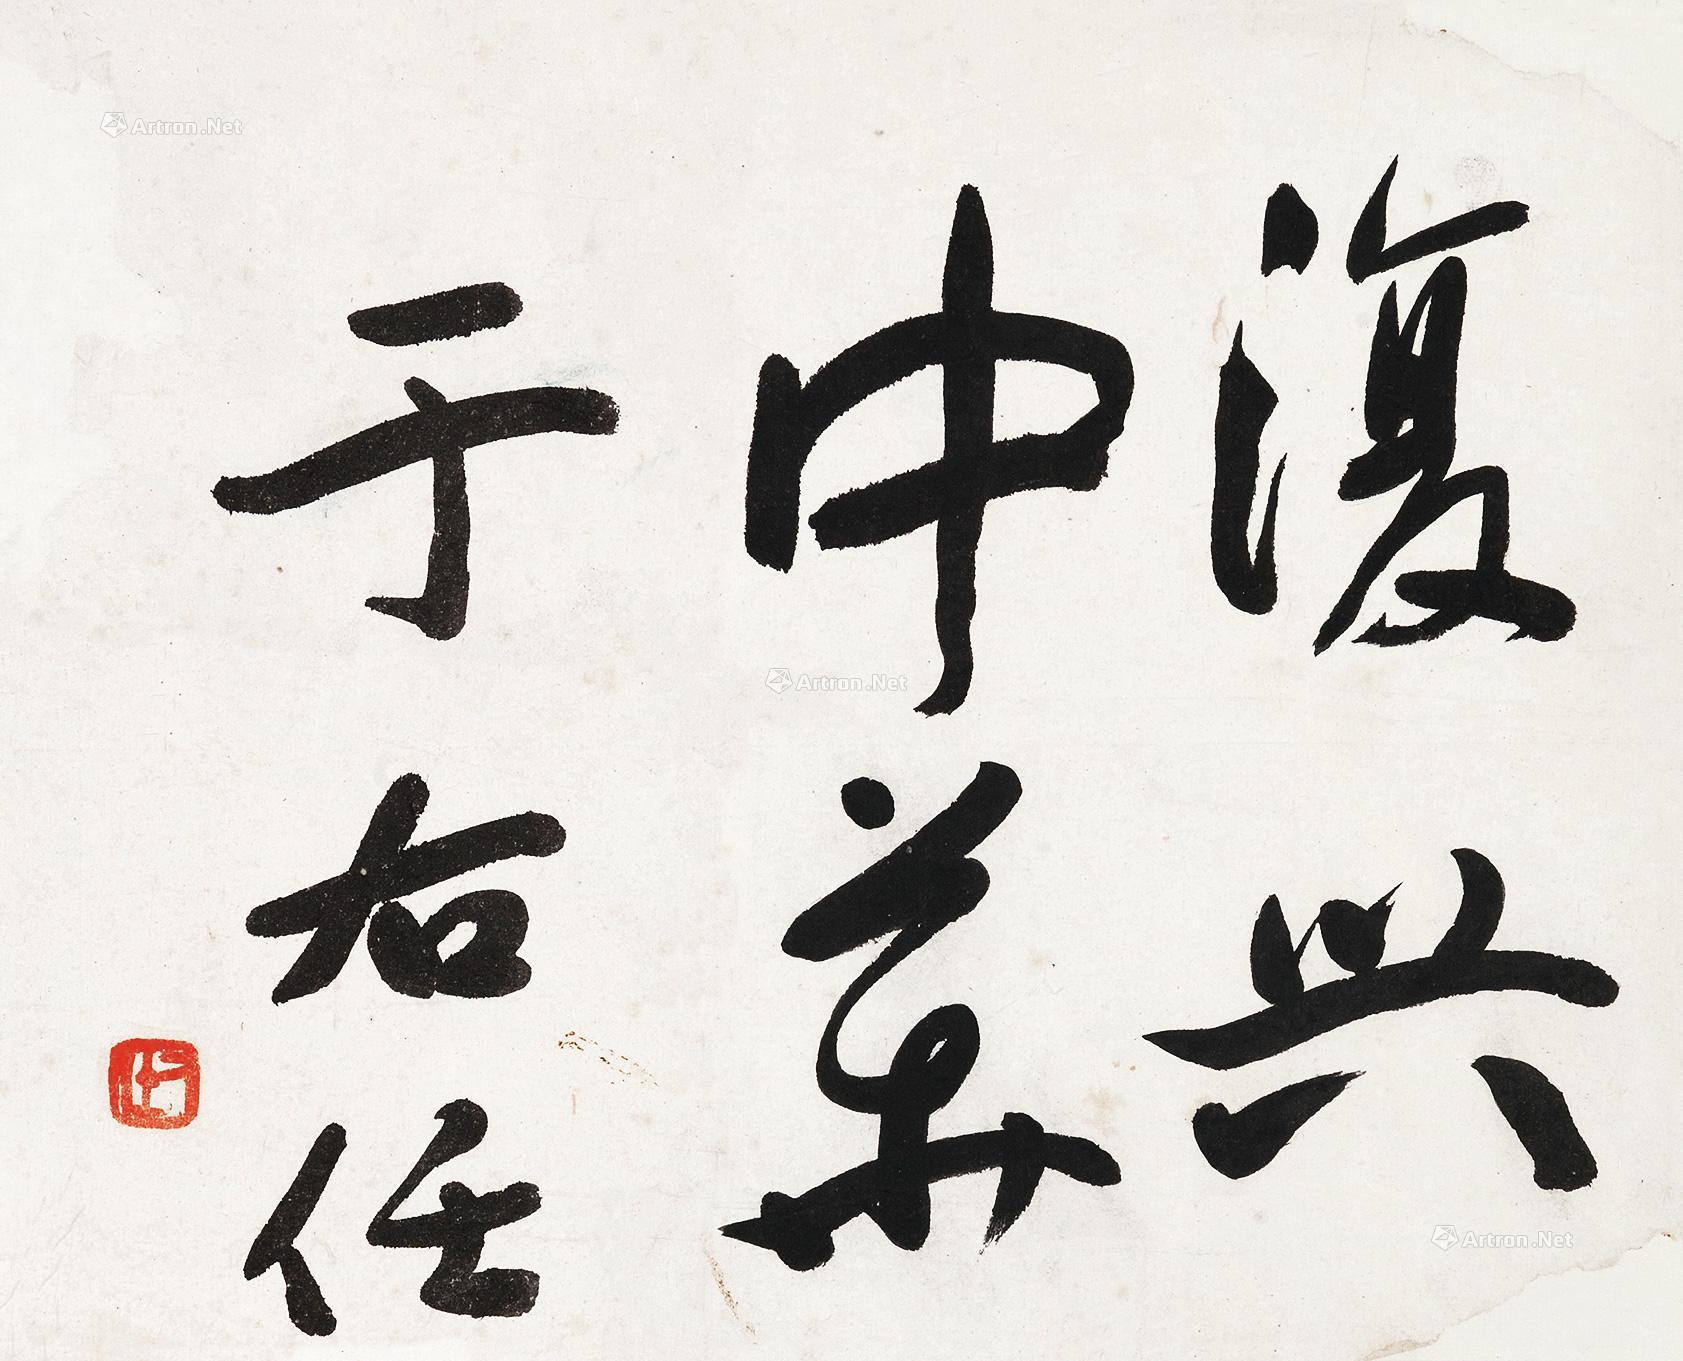 復興
中華
于右任
Artron.Net
Artron.Net
Artron.Net